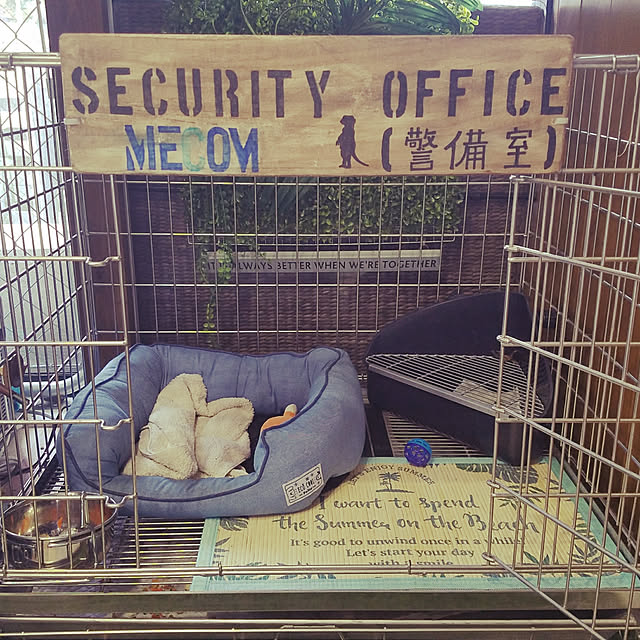 SECURITY OFFICE
MECOM (警備室)
ALWAYS BETTER WHEN WE'RE TOGETHER
ENJOY SUMMER
I want to spend
the Summer on the Beach
It's good to unwind once in a while
Let's start your day
with smile